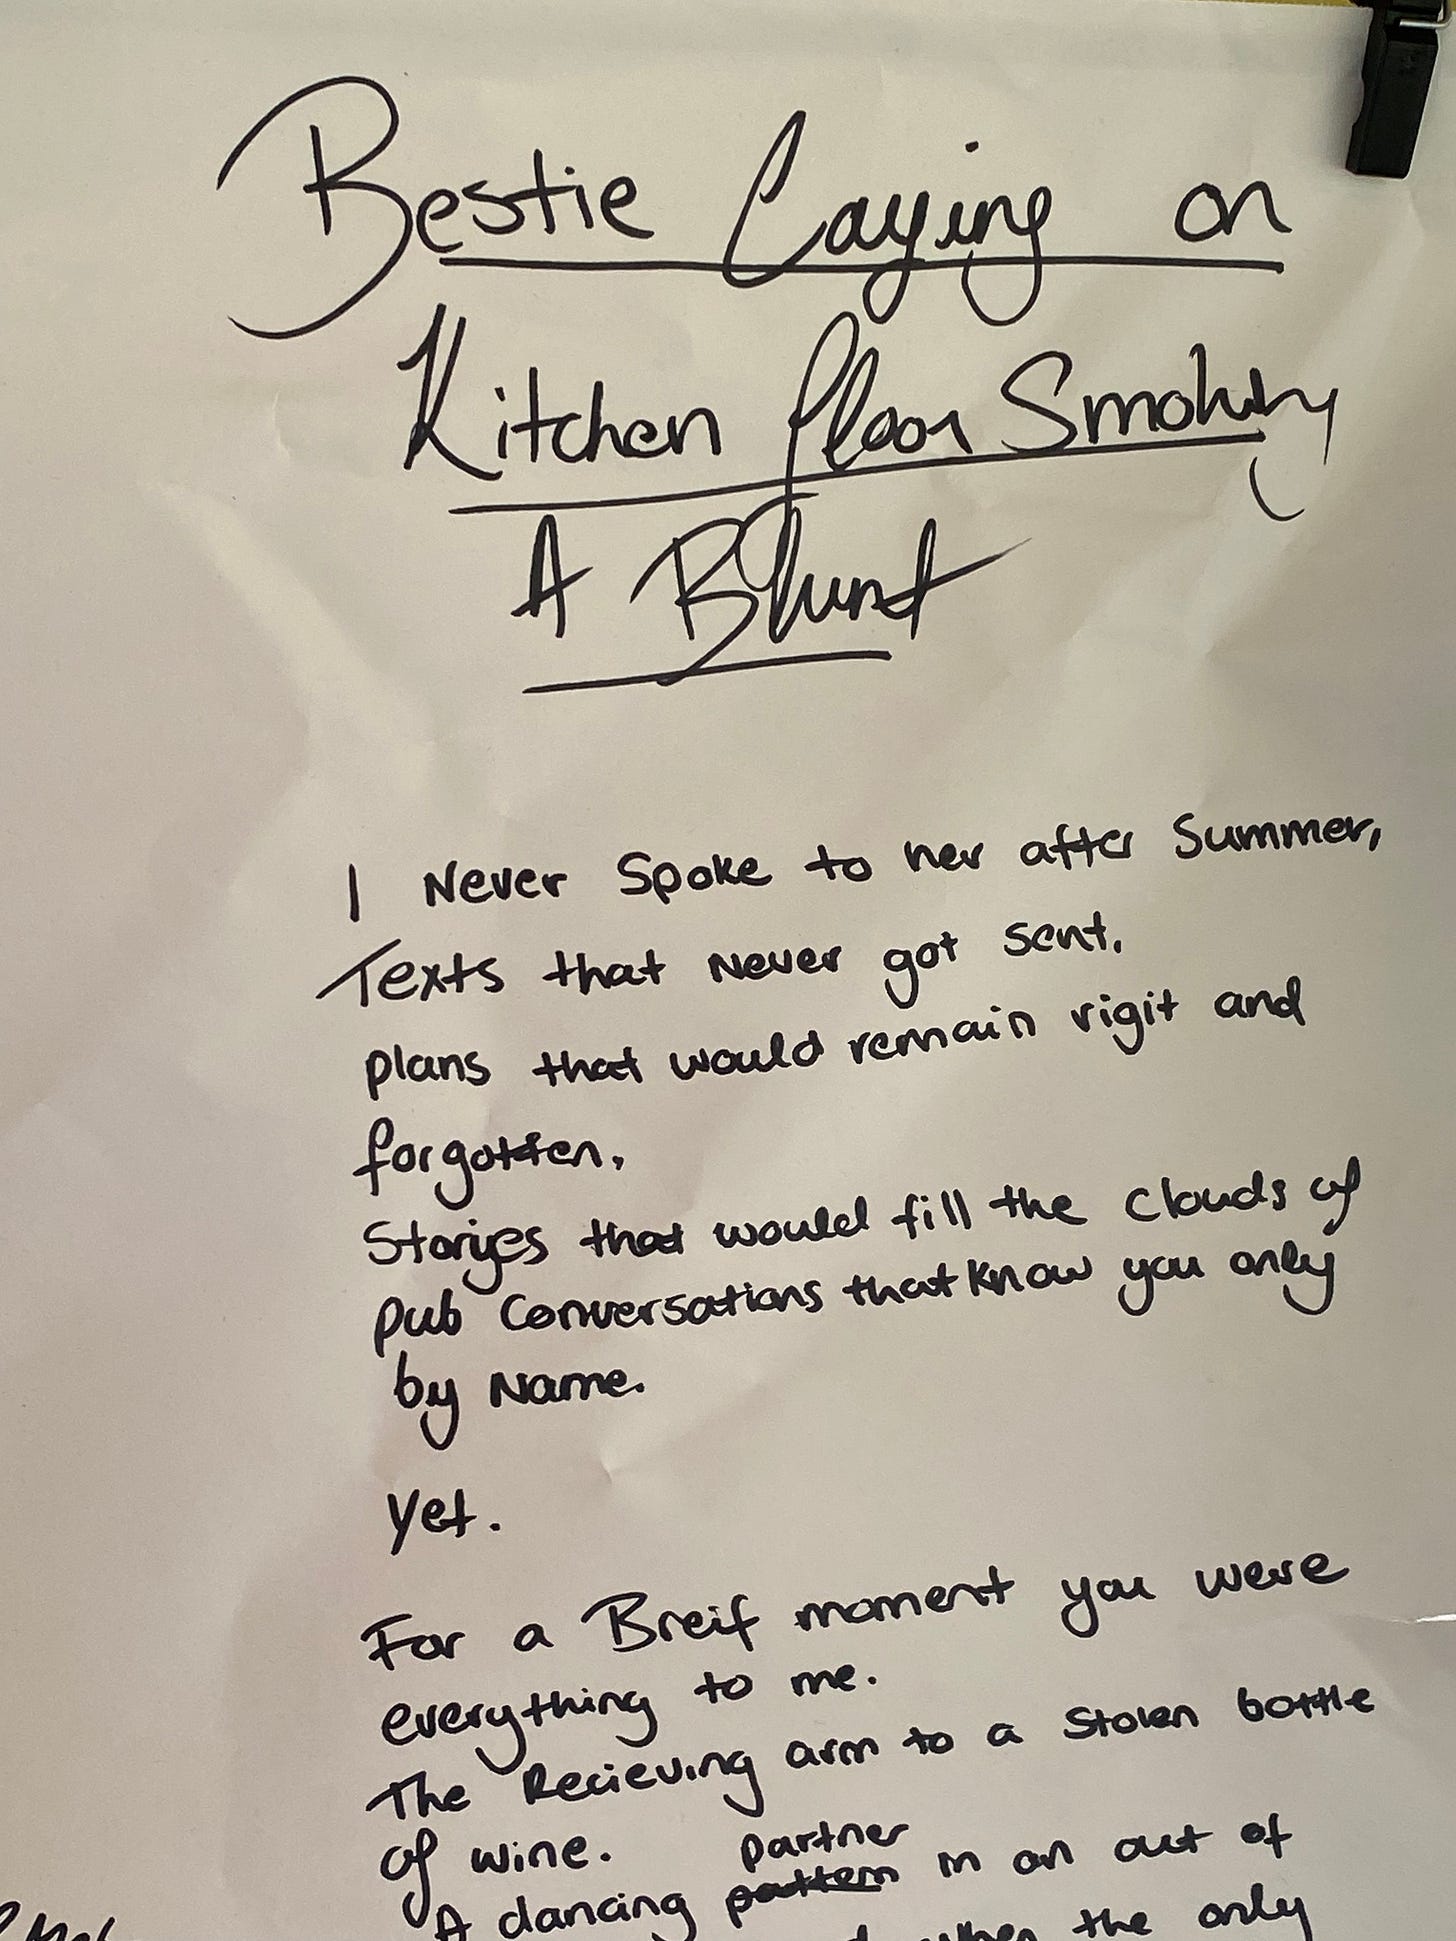 Bestie Laying on
Kitchen floor Smoking
A Blunt
I Never Spoke to her after Summer,
Texts that Never got sent.
plans that would remain rigit and
forgotten.
Stories that would fill the clouds of
pub Conversations that know you only
by Name.
Yet.
For a Breif moment you were
everything to me.
The Recieving arm to a stolen bottle
of wine.
A dancing partner in an out of
when the only